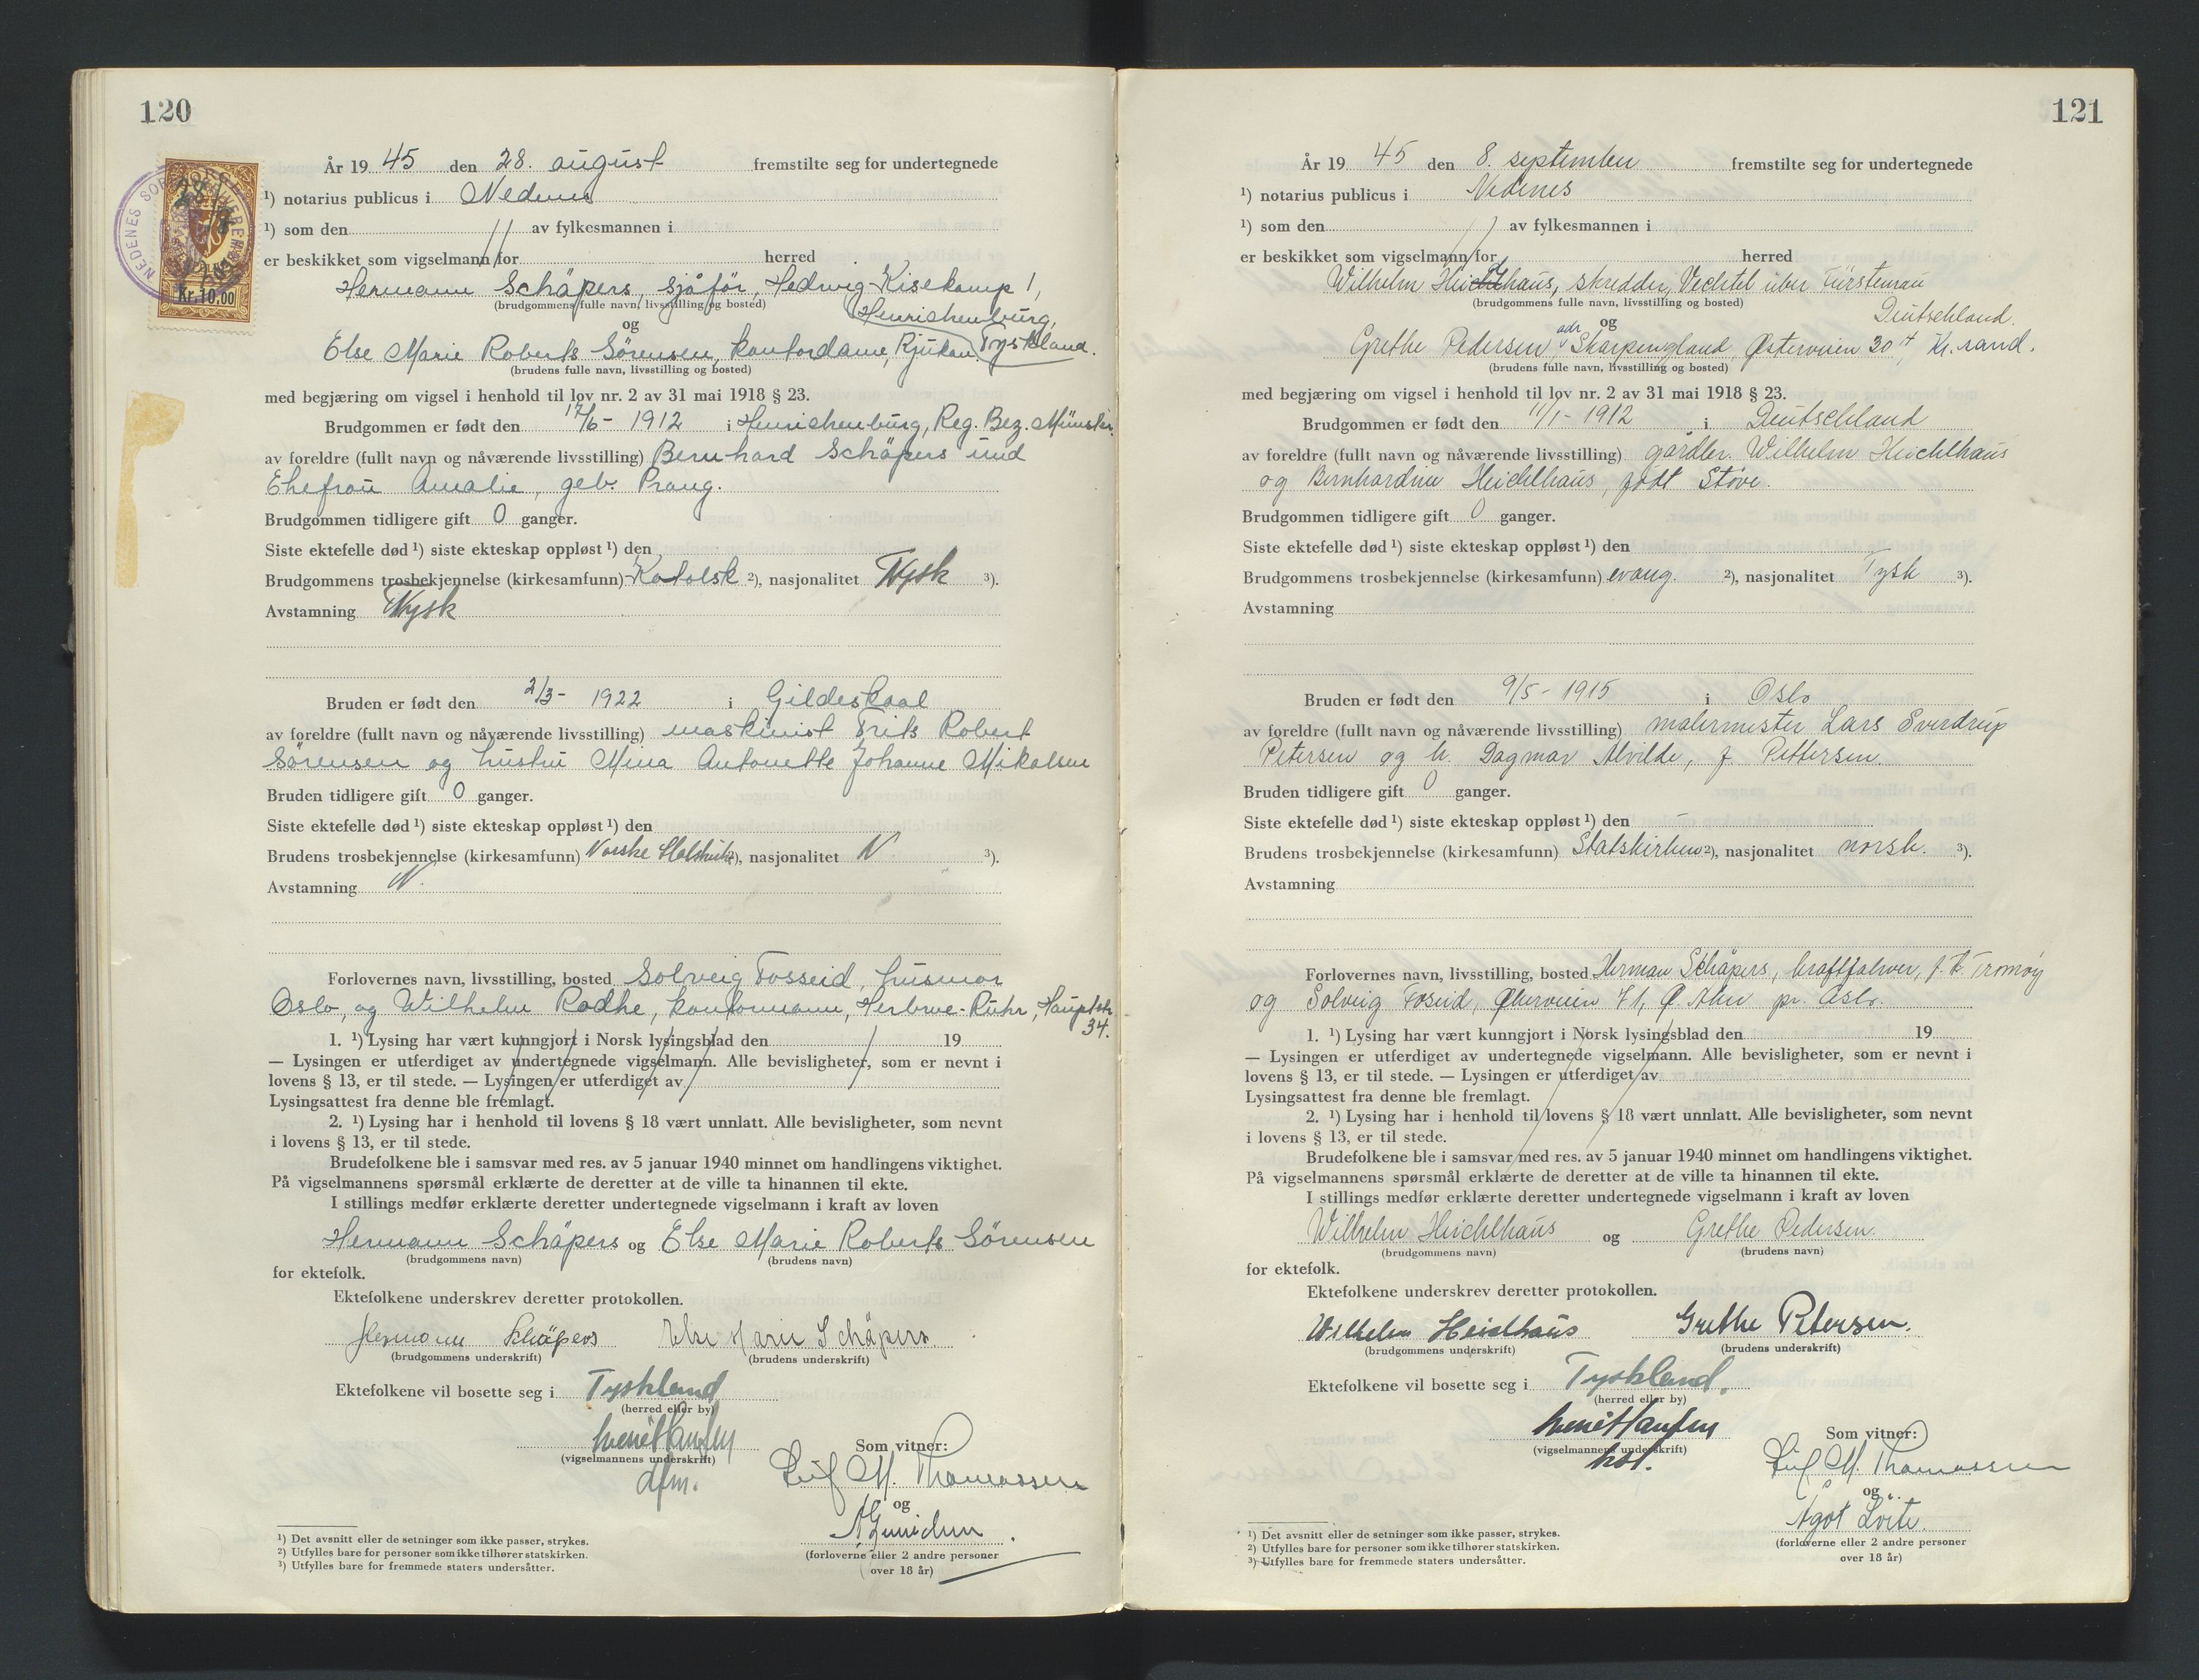 120
År 19 45 den 28. august fremstilte seg for undertegnede
¹) notarius publicus i Nedenes
¹) som den av fylkesmannen i
er beskikket som vigselmann for herred
Hermann Schäpers, sjåför, Hedwig-Kisekamp 1,
(brudgommens fulle navn, livsstilling og bosted)
Henrichenburg,
og
Tyskland.
Else Marie Roberts Sørensen, kontordame, Rjukan.
(brudens fulle navn, livsstilling og bosted)
med begjæring om vigsel i henhold til lov nr. 2 av 31 mai 1918 § 23.
Brudgommen er født den 17/6- 1912 i Henrichenburg, Reg. Bez. Münster.
av foreldre (fullt navn og nåværende livsstilling) Bernhard Schäpers und
Ehefrau Amalie, geb. Prang.
Brudgommen tidligere gift 0 ganger.
Siste ektefelle død ¹) siste ekteskap oppløst ¹) den
Brudgommens trosbekjennelse (kirkesamfunn) Katolsk ²), nasjonalitet Tysk ³).
Avstamning Tysk
Bruden er født den 2/3- 1922 i Gildeskaal
av foreldre (fullt navn og nåværende livsstilling) maskinist Frits Robert
Sørensen og hustru Mina Antonette Johanne Mikalsen
Bruden tidligere gift 0 ganger.
Siste ektefelle død ¹) siste ekteskap oppløst ¹) den
Brudens trosbekjennelse (kirkesamfunn) Norske Statskirke ²), nasjonalitet N ³).
Avstamning N.
Forlovernes navn, livsstilling, bosted Solveig Fosseid, husmor
Oslo, og Wilhelm Rodhe, kontormann, Herbrue-Ruhr, Hauptstr.
34.
1. ¹) Lysing har vært kunngjort i Norsk lysingsblad den 19
— Lysingen er utferdiget av undertegnede vigselmann. Alle bevisligheter, som er nevnt i
lovens § 13, er til stede. — Lysingen er utferdiget av
Lysingsattest fra denne ble fremlagt.
2. ¹) Lysing har i henhold til lovens § 18 vært unnlatt. Alle bevisligheter, som nevnt
i lovens § 13, er til stede.
Brudefolkene ble i samsvar med res. av 5 januar 1940 minnet om handlingens viktighet.
På vigselmannens spørsmål erklærte de deretter at de ville ta hinannen til ekte.
I stillings medfør erklærte deretter undertegnede vigselmann i kraft av loven
Hermann Schäpers og Else Marie Roberts Sörensen
(brudgommens navn) (brudens navn)
for ektefolk.
Ektefolkene underskrev deretter protokollen.
Hermann Schäpers Else Marie Schäpers.
(brudgommens underskrift) (brudens underskrift)
Ektefolkene vil bosette seg i Tyskland
(herred eller by)
Som vitner:
(vigselmannens underskrift)
dfm.
Leif M. Thomassen
og
(forloverne eller 2 andre personer
over 18 år)
¹) Det avsnitt eller de setninger som ikke passer, strykes.
²) Utfylles bare for personer som ikke tilhører statskirken.
³) Utfylles bare for fremmede staters undersåtter.
Kr. 10,00
121
År 19 45 den 8. september fremstilte seg for undertegnede
¹) notarius publicus i Nedenes
¹) som den av fylkesmannen i
er beskikket som vigselmann for herred
Wilhelm Heichlhaus, skredder, Vechtel über Fürstenau
(brudgommens fulle navn, livsstilling og bosted)
Deutschland.
og
Grethe Pedersen, adr Skarpengland, Østerveien 30 II, Kr.sand.
(brudens fulle navn, livsstilling og bosted)
med begjæring om vigsel i henhold til lov nr. 2 av 31 mai 1918 § 23.
Brudgommen er født den 11/1- 1912 i Deutschland
av foreldre (fullt navn og nåværende livsstilling) gårdbr. Wilhelm Heichlhaus
og Bernhardine Heichlhaus, født Stöve.
Brudgommen tidligere gift 0 ganger.
Siste ektefelle død ¹) siste ekteskap oppløst ¹) den
Brudgommens trosbekjennelse (kirkesamfunn) evang. ²), nasjonalitet Tysk ³).
Avstamning
Bruden er født den 9/5- 1915 i Oslo
av foreldre (fullt navn og nåværende livsstilling) malermester Lars Sverdrup
Petersen og h. Dagmar Alvilde, f. Pettersen.
Bruden tidligere gift 0 ganger.
Siste ektefelle død ¹) siste ekteskap oppløst ¹) den -
Brudens trosbekjennelse (kirkesamfunn) Statskirken ²), nasjonalitet norsk. ³).
Avstamning
Forlovernes navn, livsstilling, bosted Herman Schäpers, kraftfahrer, f. t. Tromøy
og Solveig Foseid, Økerveien 71, Ø. Aker pr. Oslo.
1. ¹) Lysing har vært kunngjort i Norsk lysingsblad den 19
— Lysingen er utferdiget av undertegnede vigselmann. Alle bevisligheter, som er nevnt i
lovens § 13, er til stede. — Lysingen er utferdiget av
Lysingsattest fra denne ble fremlagt.
2. ¹) Lysing har i henhold til lovens § 18 vært unnlatt. Alle bevisligheter, som nevnt
i lovens § 13, er til stede.
Brudefolkene ble i samsvar med res. av 5 januar 1940 minnet om handlingens viktighet.
På vigselmannens spørsmål erklærte de deretter at de ville ta hinannen til ekte.
I stillings medfør erklærte deretter undertegnede vigselmann i kraft av loven
Wilhelm Heichlhaus og Grethe Pedersen.
(brudgommens navn) (brudens navn)
for ektefolk.
Ektefolkene underskrev deretter protokollen.
Wilhelm Heidlhaus Grethe Petersen.
(brudgommens underskrift) (brudens underskrift)
Ektefolkene vil bosette seg i Tyskland.
(herred eller by)
Som vitner:
(vigselmannens underskrift)
Leif M. Thomassen
og
Ågot Løite.
(forloverne eller 2 andre personer
over 18 år)
¹) Det avsnitt eller de setninger som ikke passer, strykes.
²) Utfylles bare for personer som ikke tilhører statskirken.
³) Utfylles bare for fremmede staters undersåtter.